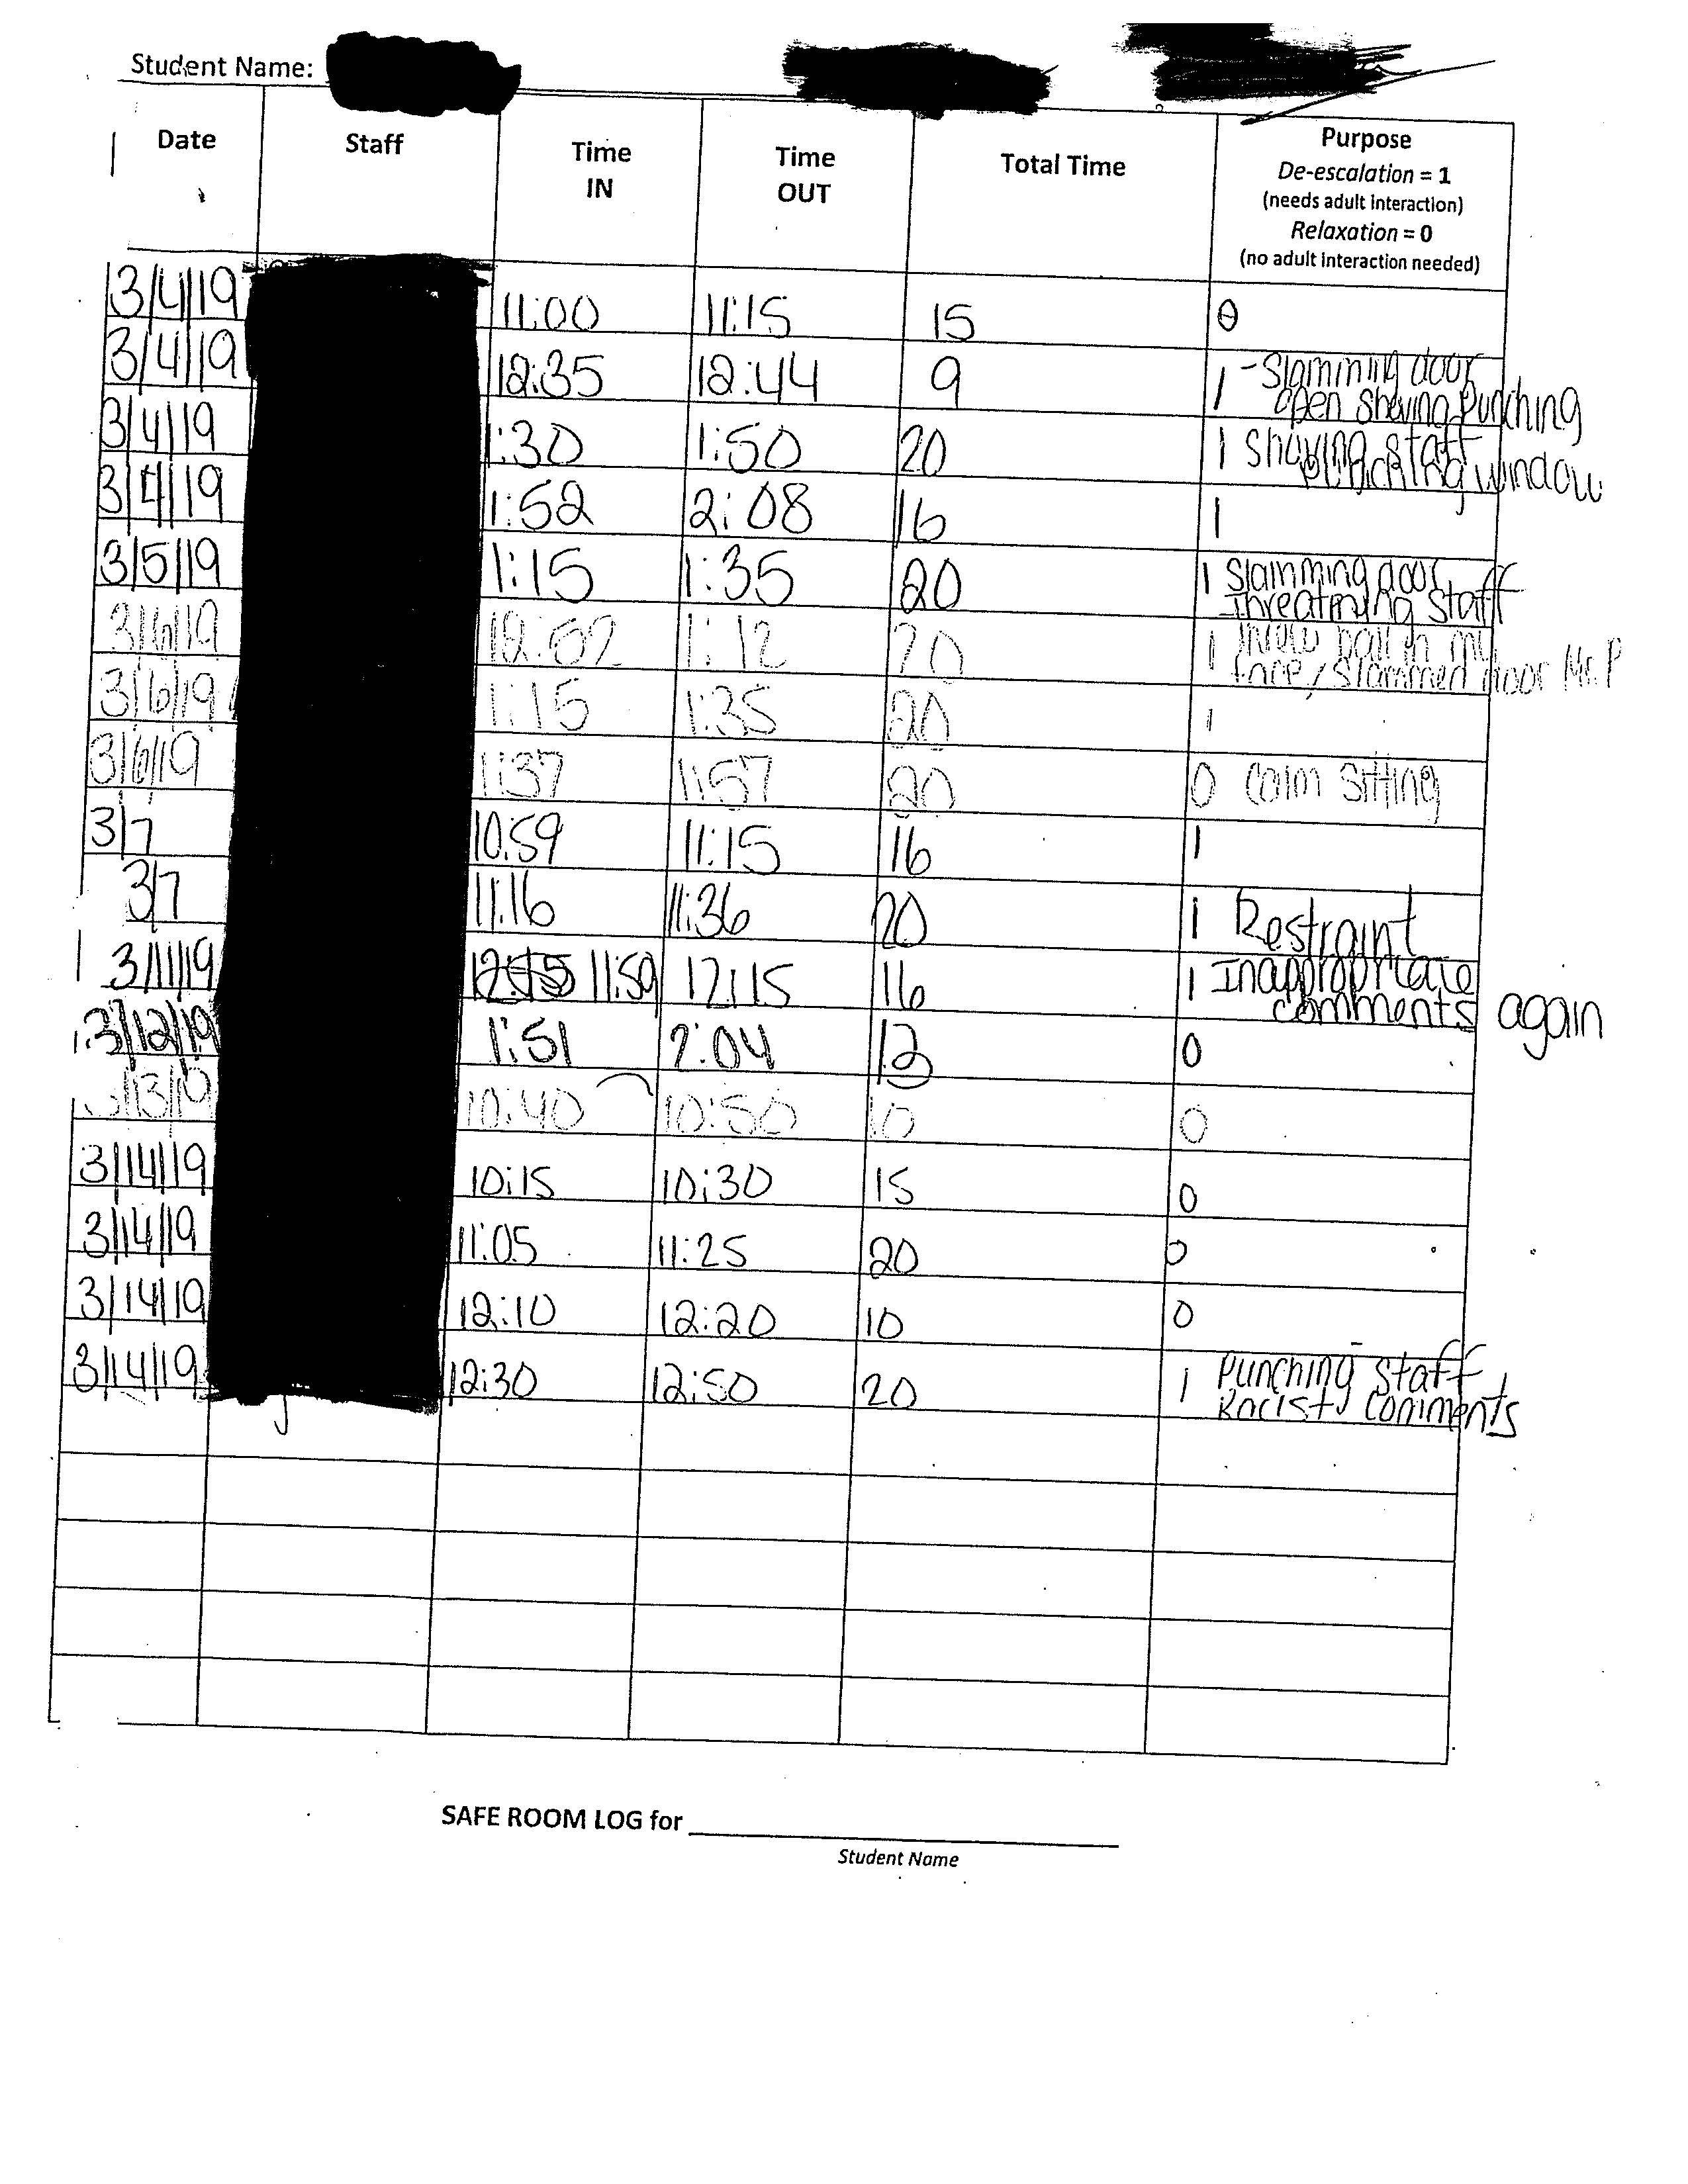 Student Name:
Date Staff Time IN Time OUT Total Time Purpose
De-escalation = 1
(needs adult interaction)
Relaxation = 0
(no adult interaction needed)
3/4/19 11:00 11:15 15 0
3/4/19 12:35 12:44 9 1 - Slamming door
open shoving punching
3/4/19 1:30 1:50 20 1 shoving staff
window
3/4/19 1:52 2:08 16 1
3/5/19 1:15 1:35 20 1 slamming door
threatning staff
3/6/19 12:52 1:12 20 1 threw ball in my
face/slammed door Mr. P
3/6/19 1:15 1:35 20 1
3/6/19 1:37 1:57 20 0 calm sitting
3/7 10:59 11:15 16 1
3/7 11:16 11:36 20 1 Restraint
3/11/19 11:59 12:15 16 1 Inappropriate
comments again
3/12/19 1:51 2:04 13 0
3/13/19 10:40 10:50 10 0
3/14/19 10:15 10:30 15 0
3/14/19 11:05 11:25 20 0
3/14/19 12:10 12:20 10 0
3/14/19 12:30 12:50 20 1 Punching staff
Racist comments
SAFE ROOM LOG for
Student Name